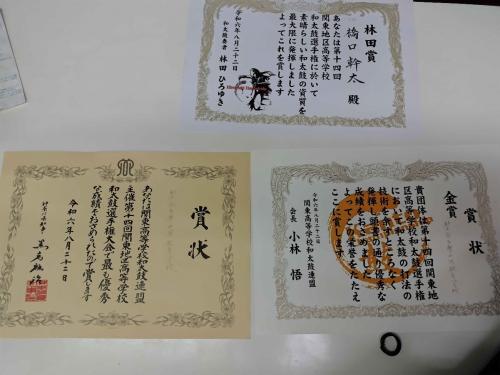 林田賞
橋口幹太 殿
あなたは第十四回
関東地区高等学校
和太鼓選手権に於いて
素晴らしい和太鼓の資質を
最大限に発揮しました
よってこれを賞します
令和六年八月二十二日
和太鼓奏者 林田ひろゆき
賞状
あなたは関東高等学校和太鼓連盟
主催第十四回関東地区高等学校
和太鼓選手権大会で最も優秀
な成績をおさめられたので賞します
令和六年八月二十二日
賞状
金賞
貴団体は第十四回関東地
区高等学校和太鼓選手権
において和太鼓の打法の
技術を余すところなく
発揮し頭書の通り優秀な
成績をおさめました
よってその栄誉をたたえ
ここに賞します
令和六年八月二十二日
関東高等学校和太鼓連盟
会長 小林 悟